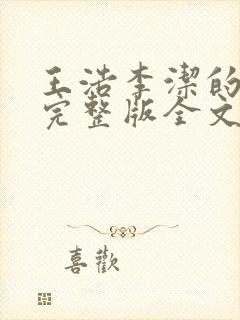 王浩李潔的
完整版全文
喜歡